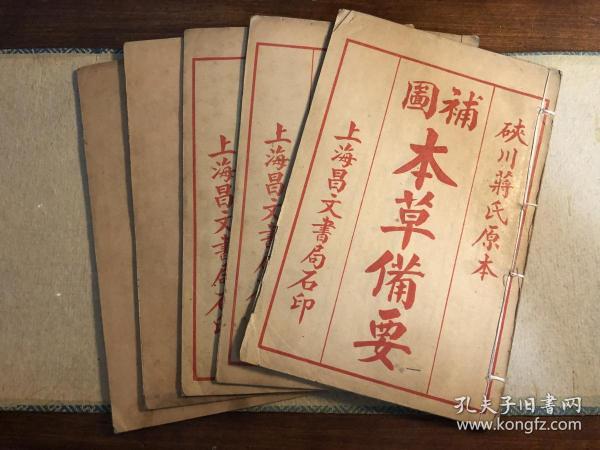 硤川蔣氏原本
補圖
本草備要
一
上海昌文書局石印
上海昌文書
上海昌文書局石印
孔夫子旧書网
www.kongfz.com